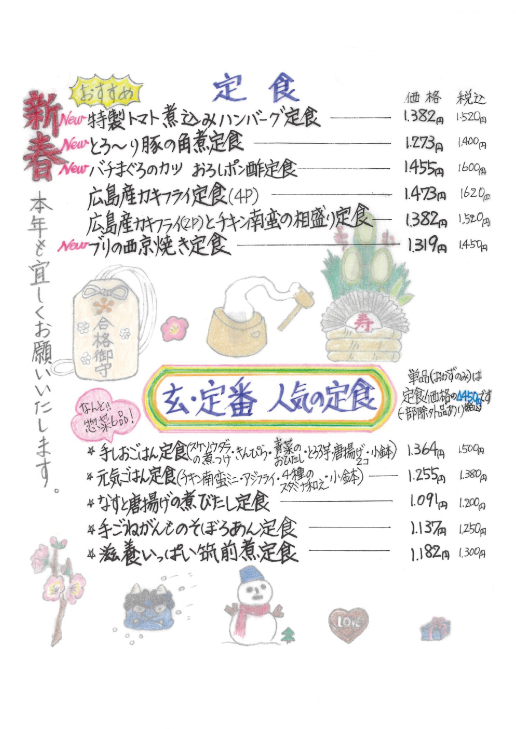 新春
本年も宜しくお願いいたします。
おすすめ
定食
価格 税込
New 特製トマト煮込みハンバーグ定食 1.382円 1.520円
New とろ〜り豚の角煮定食 1.273円 1.400円
New バチまぐろのカツ おろしポン酢定食 1.455円 1.600円
広島産カキフライ定食(4P) 1.473円 1.620円
広島産カキフライ(2P)とチキン南蛮の相盛り定食 1.382円 1.520円
New ブリの西京焼き定食 1.319円 1.450円
合格御守
寿
玄・定番 人気の定食
単品(おかずのみ)は
定食価格の△450円です
(一部除外品あり)
なんと!!
惣菜6品!
手しおごはん定食(スケソウダラの煮つけ・きんぴら・青菜のおひたし・とろ芋・唐揚げ2コ・小鉢) 1.364円 1.500円
元気ごはん定食(チキン南蛮ミニ・アジフライ・4種のスタミナ和え・小鉢) 1.255円 1.380円
なすと唐揚げの煮びたし定食 1.091円 1.200円
手ごねがんものそぼろあん定食 1.137円 1.250円
滋養いっぱい筑前煮定食 1.182円 1.300円
LOVE